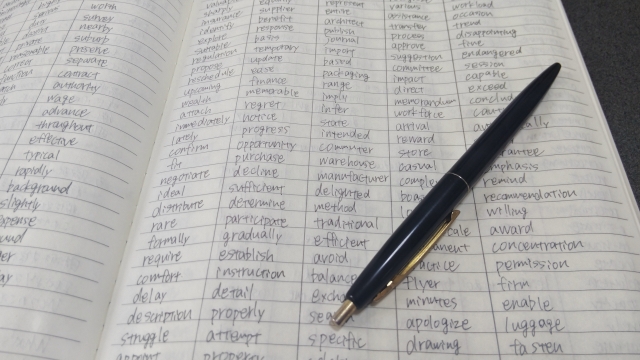 worth
survey
nearby
suburb
preserve
separate
contract
authority
wage
advance
throughout
effective
typical
rapidly
background
slightly
identify
suitable
regulation
propose
reschedule
upcoming
wealth
attach
immediately
lately
confirm
fit
negotiate
ideal
distribute
rare
formally
require
comfort
delay
description
struggle
supplier
benefit
response
basis
temporary
update
ease
finance
memorable
regret
notice
progress
opportunity
purchase
decline
sufficient
determine
participate
gradually
establish
instruction
detail
properly
attempt
property
represent
entire
architect
publish
journal
import
based
packaging
range
imply
infer
state
intended
commuter
warehouse
manufacturer
delighted
method
traditional
efficient
avoid
balance
specific
various
admittance
transfer
process
approve
suggestion
committee
impact
direct
memorandum
workforce
arrival
reward
store
casual
flyer
minutes
apologize
drawing
workload
occasion
trend
disappointing
fine
endangered
session
capable
exceed
remind
recommendation
willing
award
concentration
permission
firm
enable
luggage
fasten